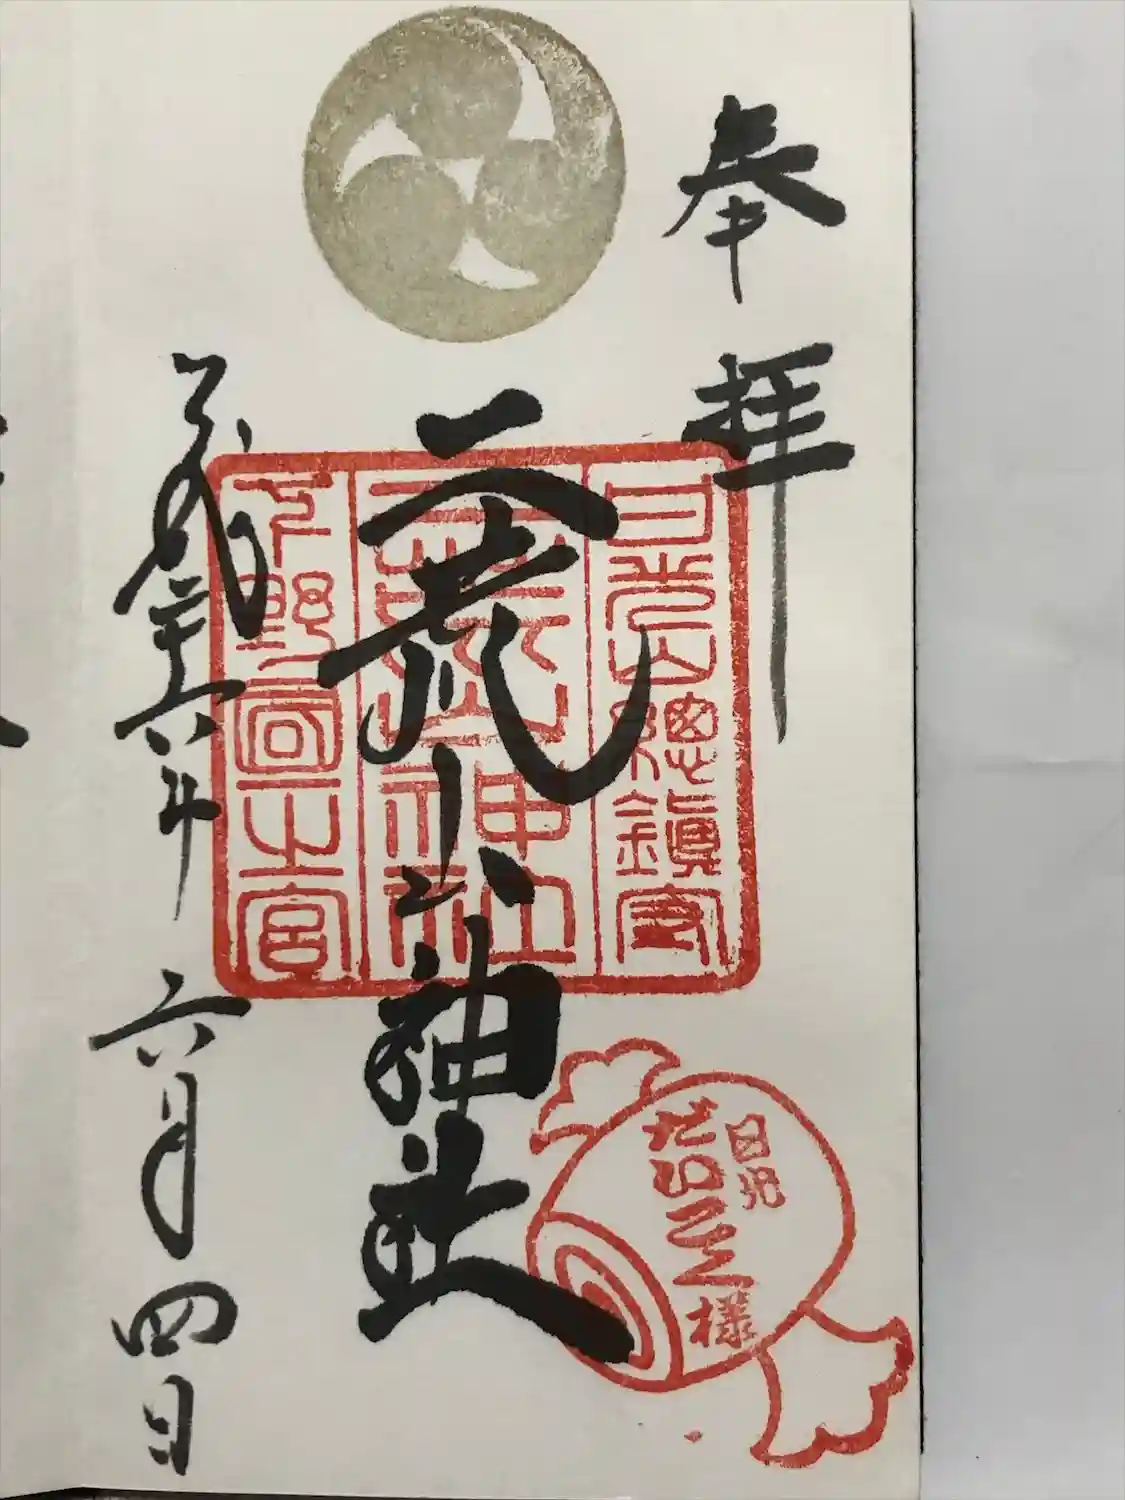 奉拝
日光山總鎮守
二荒山神社
下野國一之宮
二荒山神社
平成二十六年 六月四日
日光
だいこく様